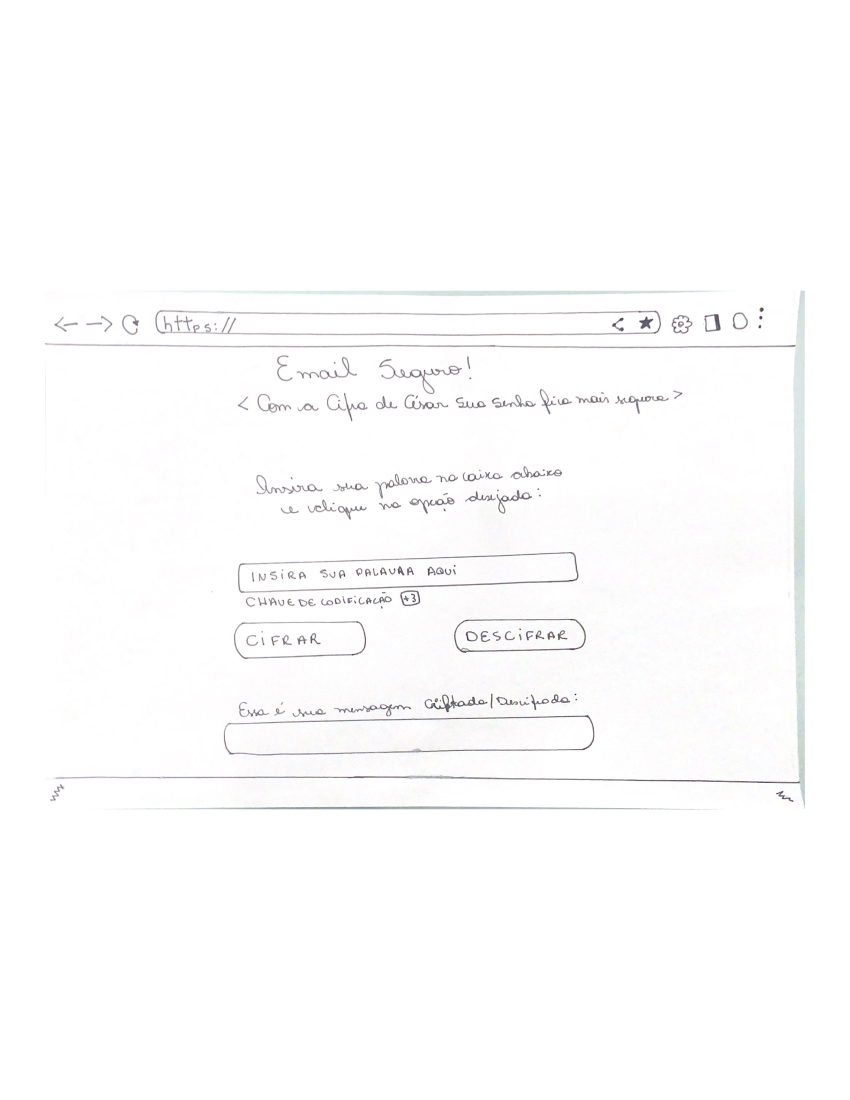 https://
Email Seguro!
< Com a Cifra de César sua senha fica mais segura >
Insira sua palavra na caixa abaixo
e clique na opção desejada:
INSIRA SUA PALAVRA AQUI
CHAVE DE CODIFICAÇÃO +3
CIFRAR DESCIFRAR
Essa é sua mensagem Criptada/Descifrada: